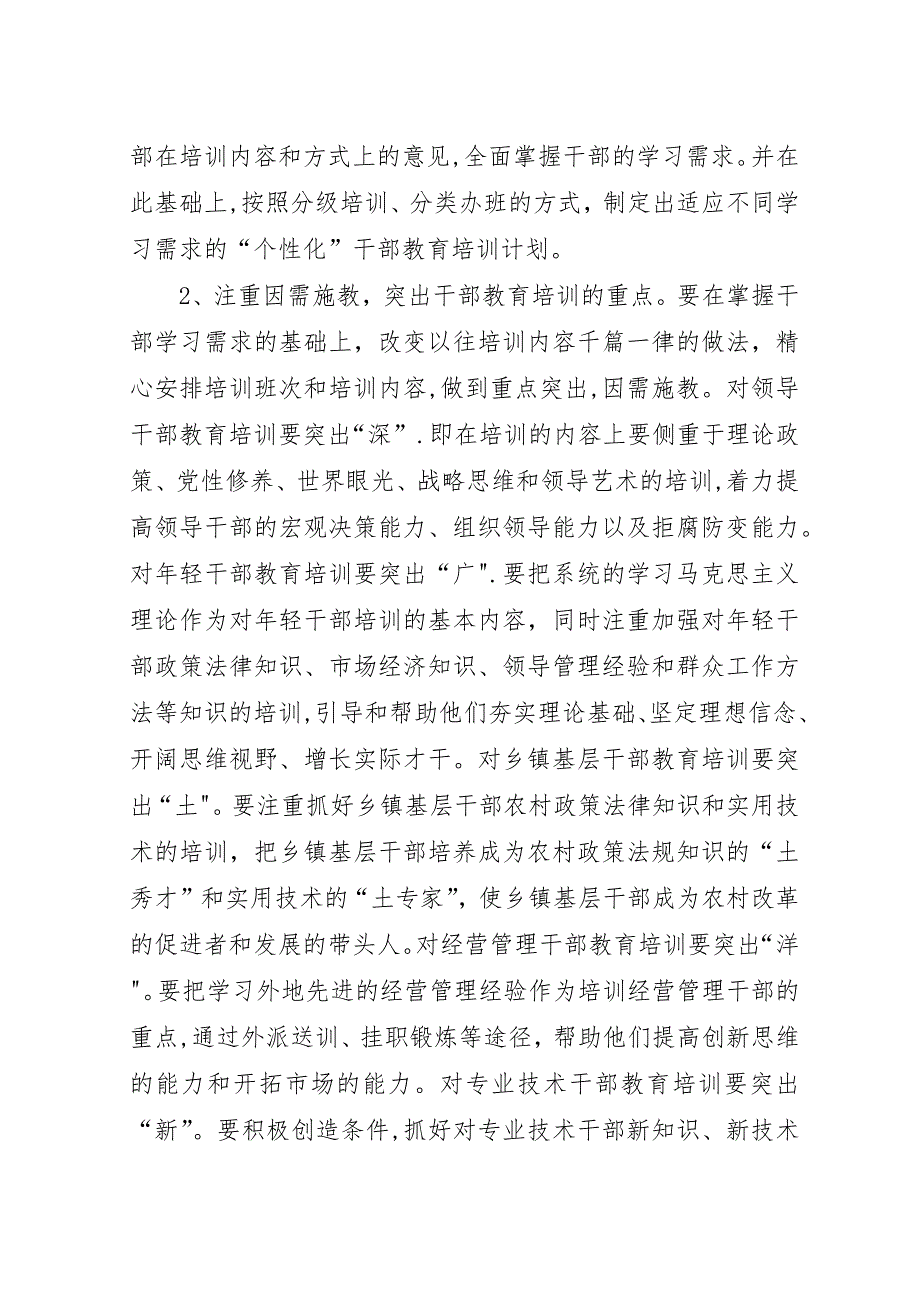 部在培训内容和方式上的意见,全面掌握干部的学习需求。并在
此基础上,按照分级培训、分类办班的方式，制定出适应不同学
习需求的“个性化”干部教育培训计划。
2、注重因需施教，突出干部教育培训的重点。要在掌握干
部学习需求的基础上，改变以往培训内容千篇一律的做法，精
心安排培训班次和培训内容,做到重点突出,因需施教。对领导
干部教育培训要突出“深”.即在培训的内容上要侧重于理论政
策、党性修养、世界眼光、战略思维和领导艺术的培训,着力提
高领导干部的宏观决策能力、组织领导能力以及拒腐防变能力。
对年轻干部教育培训要突出“广".要把系统的学习马克思主义
理论作为对年轻干部培训的基本内容，同时注重加强对年轻干
部政策法律知识、市场经济知识、领导管理经验和群众工作方
法等知识的培训,引导和帮助他们夯实理论基础、坚定理想信念、
开阔思维视野、增长实际才干。对乡镇基层干部教育培训要突
出“土"。要注重抓好乡镇基层干部农村政策法律知识和实用技
术的培训，把乡镇基层干部培养成为农村政策法规知识的“土
秀才”和实用技术的“土专家”，使乡镇基层干部成为农村改革
的促进者和发展的带头人。对经营管理干部教育培训要突出“洋
"。要把学习外地先进的经营管理经验作为培训经营管理干部的
重点,通过外派送训、挂职锻炼等途径，帮助他们提高创新思维
的能力和开拓市场的能力。对专业技术干部教育培训要突出
“新”。要积极创造条件,抓好对专业技术干部新知识、新技术